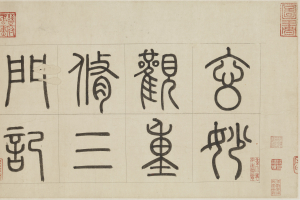 玄妙
觀重
脩三
門記